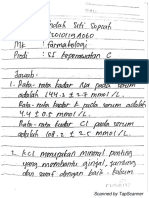 Indah Siti Supiah
Mk : Farmakologi
Prodi : S1 Keperawatan C
Jawab :
1. Rata-rata kadar Na pada serum
adalah 144,2 ± 2,3 mmol/L.
Rata-rata kadar K pada serum adalah
4,4 ± 0,5 mmol/L.
Rata-rata kadar Cl pada serum
adalah 108,2 ± 2,5 mmol/L.
2. KCl merupakan mineral penting
yang membantu ginjal, jantung,
dan saraf dengan baik. Kalium
Scanned by TapScanner